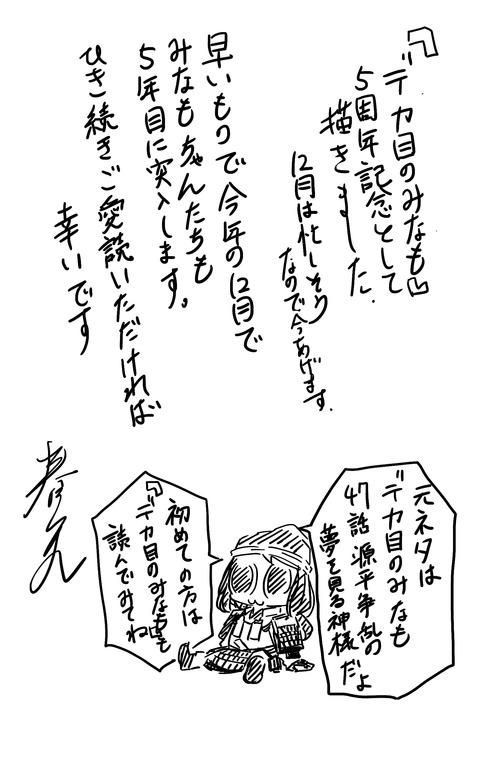 『デカ目のみなも』
5周年記念として
描きました.
12月は忙しそう
なので今あげます.
早いもので今年の12月で
みなもちゃんたちも
5年目に突入します。
ひき続きご愛読いただければ
幸いです
元ネタは
デカ目のみなも
47話 源平争乱の
夢を見る神様だよ
初めての方は
『デカ目のみなも』も
読んでみてね